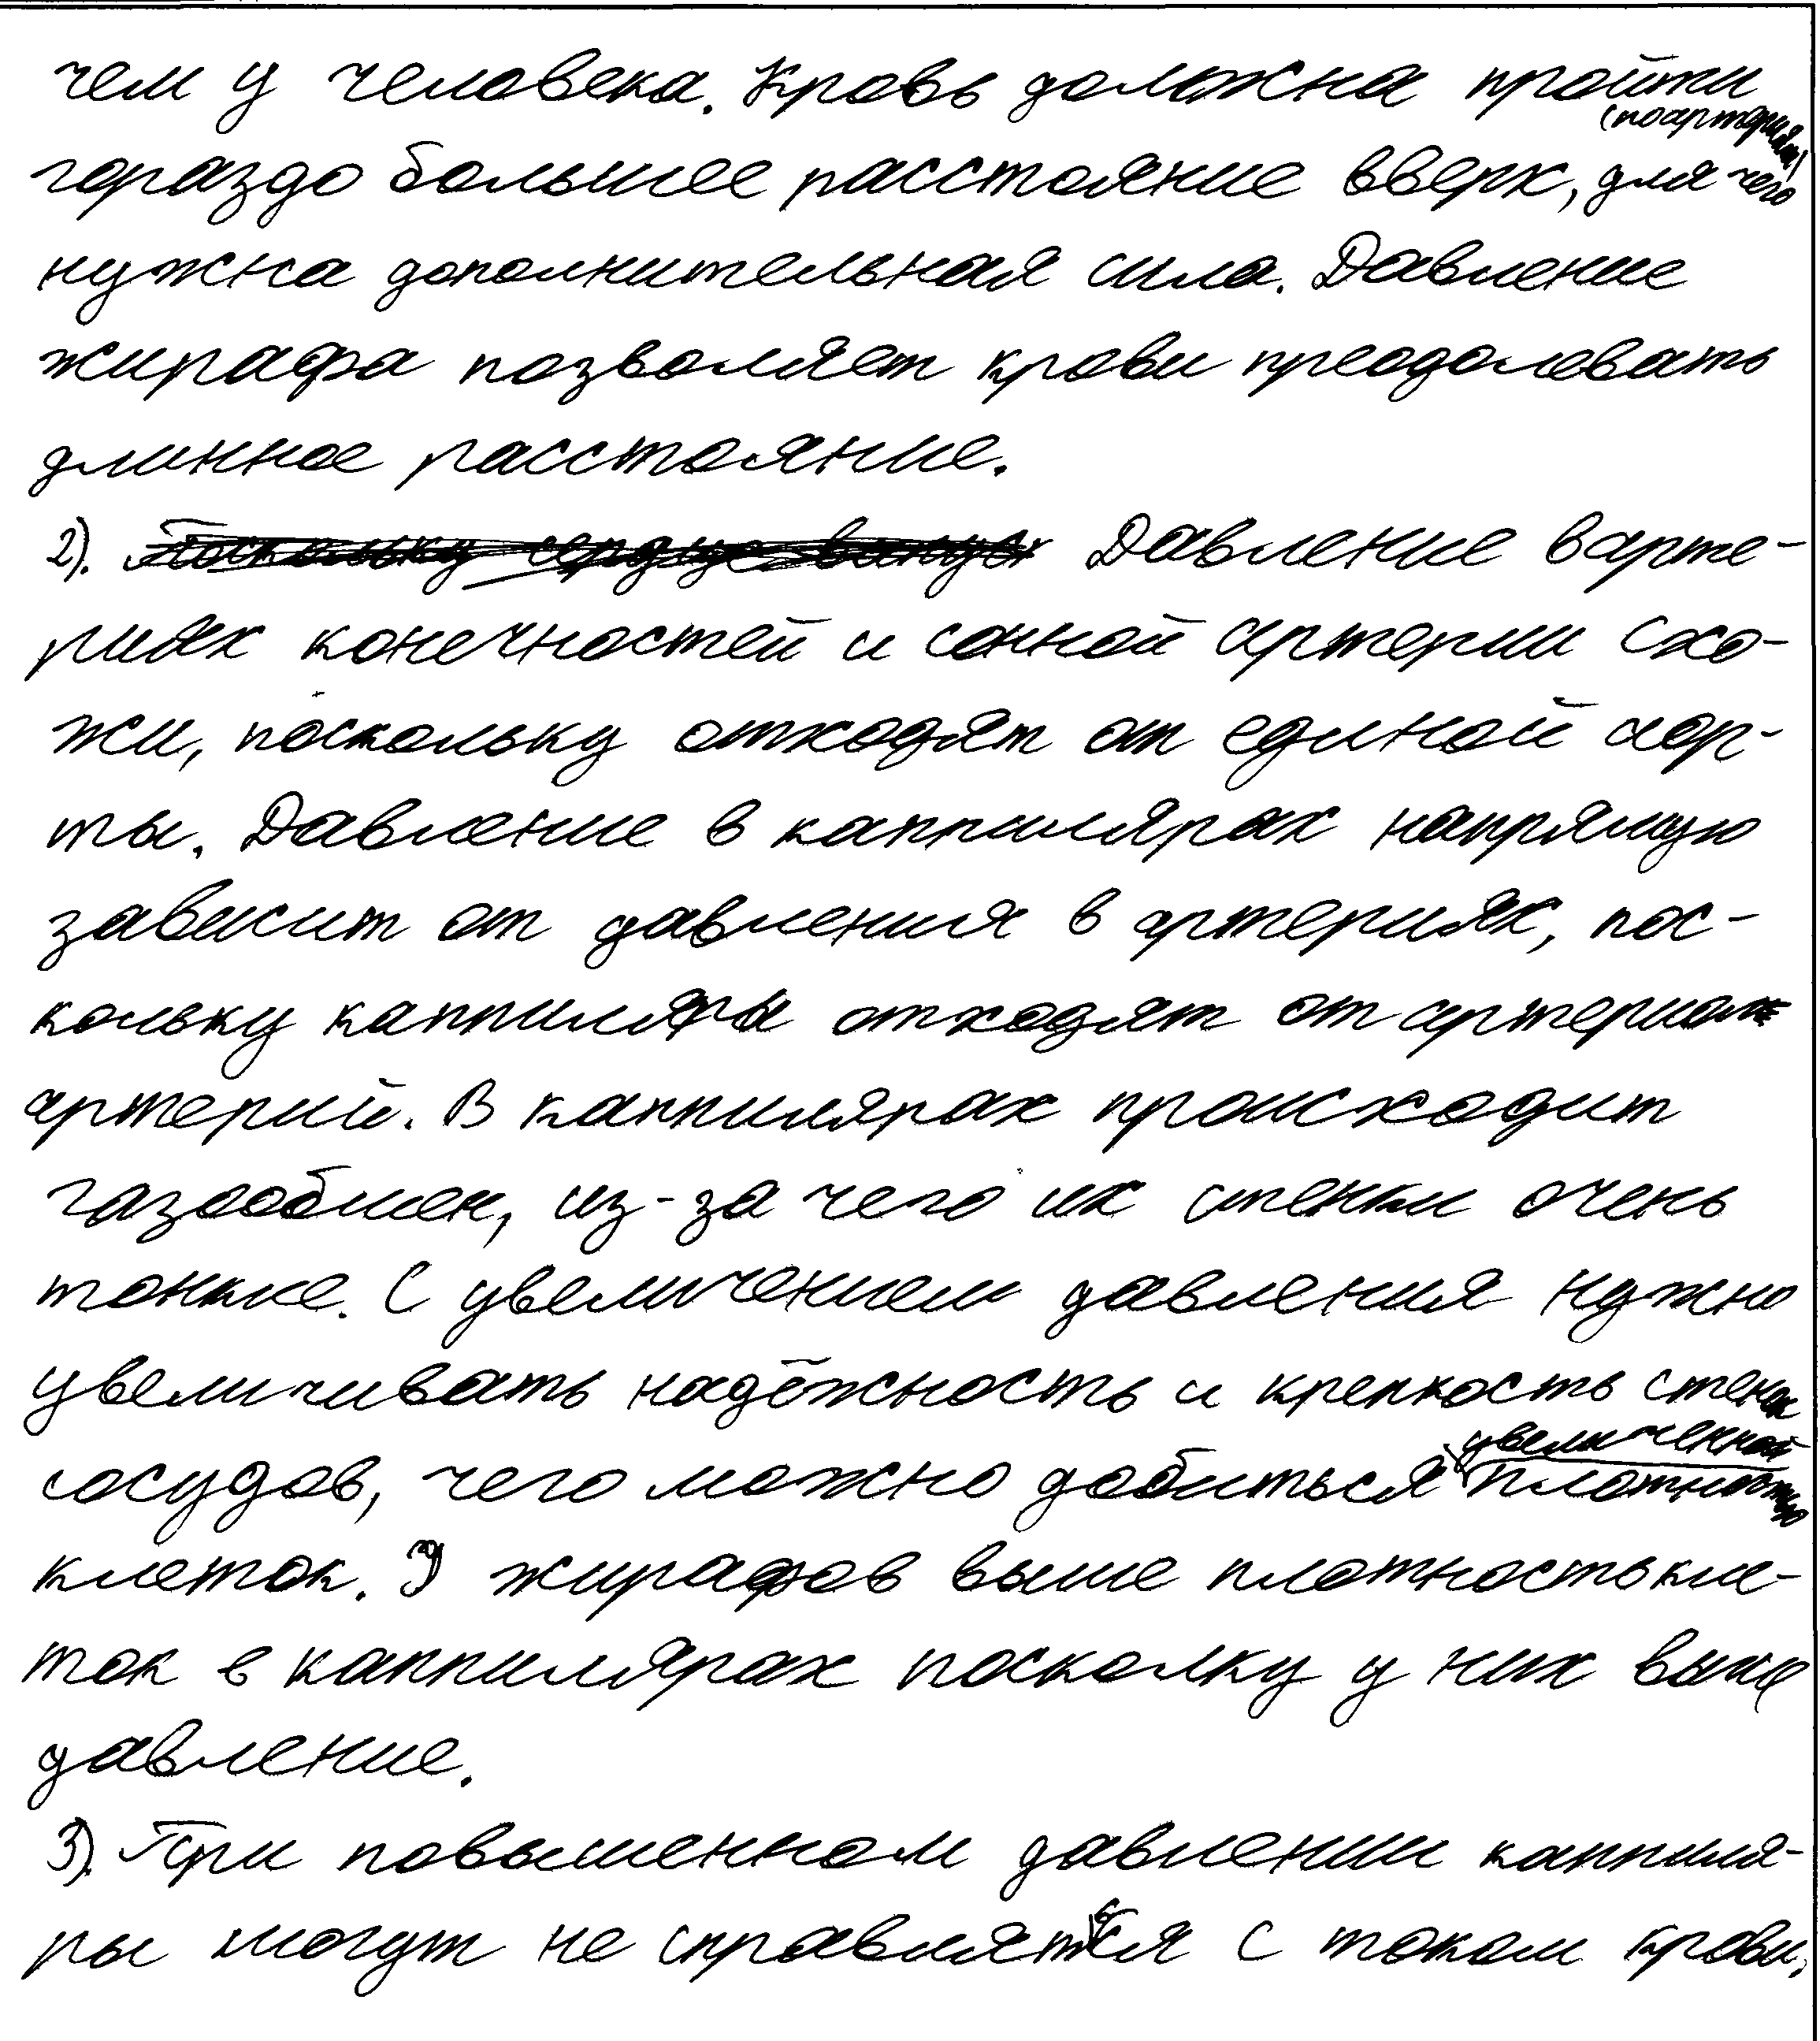 чем у человека. Кровь должна пройти
(по артериям)
гораздо большее расстояние вверх, для чего
нужна дополнительная сила. Давление
жирафа позволяет крови преодолевать
длинное расстояние.
2). Поскольку сердце Давление в арте-
риях конечностей и сонной артерии схо-
жи, поскольку отходят от единой аор-
ты. Давление в каппилярах напрямую
зависит от давления в артериях, пос-
кольку каппиляры отходят от артериол
артерий. В каппилярах происходит
газообмен, из-за чего их стенки очень
тонкие. С увеличением давления нужно
увеличивать надёжность и крепкость стенок
увеличенной
сосудов, чего можно добиться плотностью
клеток. У жирафов выше плотность кле-
ток в каппилярах посколку у них выше
давление.
3). При повышенном давлении каппиля-
ры могут не справляться с током крови,